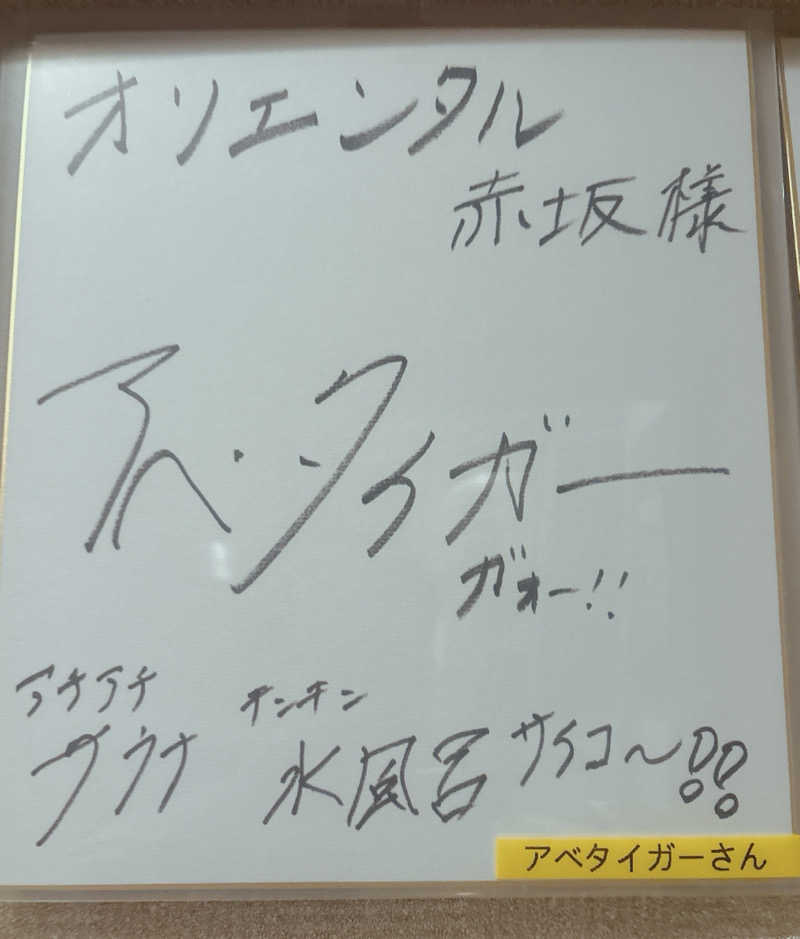 オリエンタル
赤坂様
アベ・タイガー
ガオー!!
アチアチ キンキン
サウナ 水風呂 サイコ〜!!
アベタイガーさん